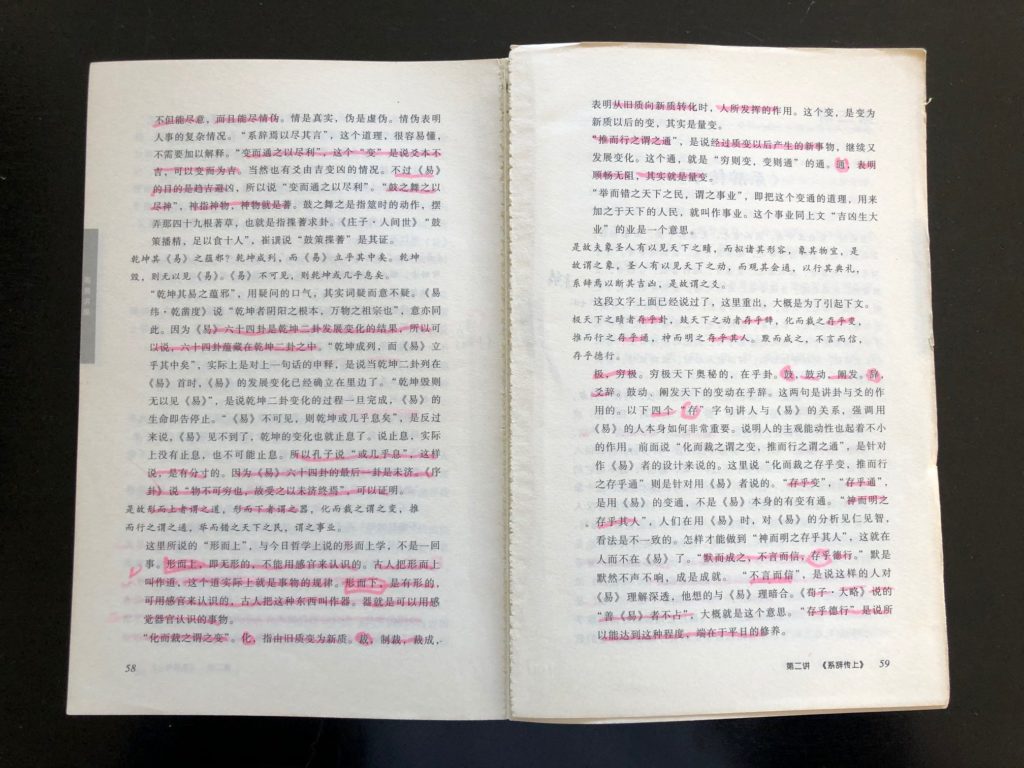 不但能尽意，而且能尽情伪。情是真实，伪是虚伪。情伪表明
人事的复杂情况。“系辞焉以尽其言”，这个道理，很容易懂，
不需要加以解释。“变而通之以尽利”，这个“变”是说爻本不
吉，可以变而为吉。当然也有爻由吉变凶的情况。不过《易》
的目的是趋吉避凶，所以说“变而通之以尽利”。“鼓之舞之以
尽神”，神指神物，神物就是蓍。鼓之舞之是指筮时的动作，摆
弄那四十九根蓍草，也就是指揲蓍求卦。《庄子·人间世》“鼓
策播精，足以食十人”，崔譔说“鼓策揲蓍”是其证。
乾坤其《易》之蕴邪？乾坤成列，而《易》立乎其中矣。乾坤
毁，则无以见《易》。《易》不可见，则乾坤或几乎息矣。
“乾坤其易之蕴邪”，用疑问的口气，其实词疑而意不疑。《易
纬·乾凿度》说“乾坤者阴阳之根本，万物之祖宗也”，意亦同
此。因为《易》六十四卦是乾坤二卦发展变化的结果，所以可
以说，六十四卦蕴藏在乾坤二卦之中。“乾坤成列，而《易》立
乎其中矣”，实际上是对上一句话的申释，是说当乾坤二卦列在
《易》首时，《易》的发展变化已经确立在里边了。“乾坤毁则
无以见《易》”，是说乾坤二卦变化的过程一旦完成，《易》的
生命即告停止。“《易》不可见，则乾坤或几乎息矣”，是反过
来说，《易》见不到了，乾坤的变化也就止息了。说止息，实际
上没有止息，也不可能止息。所以孔子说“或几乎息”，这样
说，是有分寸的。因为《易》六十四卦的最后一卦是未济。《序
卦》说“物不可穷也，故受之以未济终焉”，可以证明。
是故形而上者谓之道，形而下者谓之器，化而裁之谓之变，推
而行之谓之通，举而错之天下之民，谓之事业。
这里所说的“形而上”，与今日哲学上说的形而上学，不是一回
事。形而上，即无形的，不能用感官来认识的。古人把形而上
叫作道，这个道实际上就是事物的规律。形而下，是有形的，
可用感官来认识的，古人把这种东西叫作器。器就是可以用感
觉器官认识的事物。
“化而裁之谓之变”。化，指由旧质变为新质。裁，制裁，裁成，
58
表明从旧质向新质转化时，人所发挥的作用。这个变，是变为
新质以后的变，其实是量变。
“推而行之谓之通”，是说经过质变以后产生的新事物，继续又
发展变化。这个通，就是“穷则变，变则通”的通。通，表明
顺畅无阻，其实就是量变。
“举而错之天下之民，谓之事业”，即把这个变通的道理，用来
加之于天下的人民，就叫作事业。这个事业同上文“吉凶生大
业”的业是一个意思。
是故夫象圣人有以见天下之赜，而拟诸其形容，象其物宜，是
故谓之象，圣人有以见天下之动，而观其会通，以行其典礼，
系辞焉以断其吉凶，是故谓之爻。
这段文字上面已经说过了，这里重出，大概是为了引起下文。
极天下之赜者存乎卦，鼓天下之动者存乎辞，化而裁之存乎变，
推而行之存乎通，神而明之存乎其人。默而成之，不言而信，
存乎德行。
极，穷极。穷极天下奥秘的，在乎卦。鼓，鼓动，阐发。辞，
爻辞。鼓动、阐发天下的变动在乎辞。这两句是讲卦与爻的作
用的。以下四个“存”字句讲人与《易》的关系，强调用
《易》的人本身如何非常重要。说明人的主观能动性也起着不小
的作用。前面说“化而裁之谓之变，推而行之谓之通”，是针对
作《易》者的设计来说的。这里说“化而裁之存乎变，推而行
之存乎通”则是针对用《易》者说的。“存乎变”，“存乎通”，
是用《易》的变通，不是《易》本身的有变有通。“神而明之
存乎其人”，人们在用《易》时，对《易》的分析见仁见智，
看法是不一致的。怎样才能做到“神而明之存乎其人”，这就在
人而不在《易》了。“默而成之，不言而信，存乎德行。”默是
默然不声不响，成是成就。“不言而信”，是说这样的人对
《易》理解深透，他想的与《易》理暗合。《荀子·大略》说的
“善《易》者不占”，大概就是这个意思。“存乎德行”是说所
以能达到这种程度，端在于平日的修养。
第二讲 《系辞传上》 59